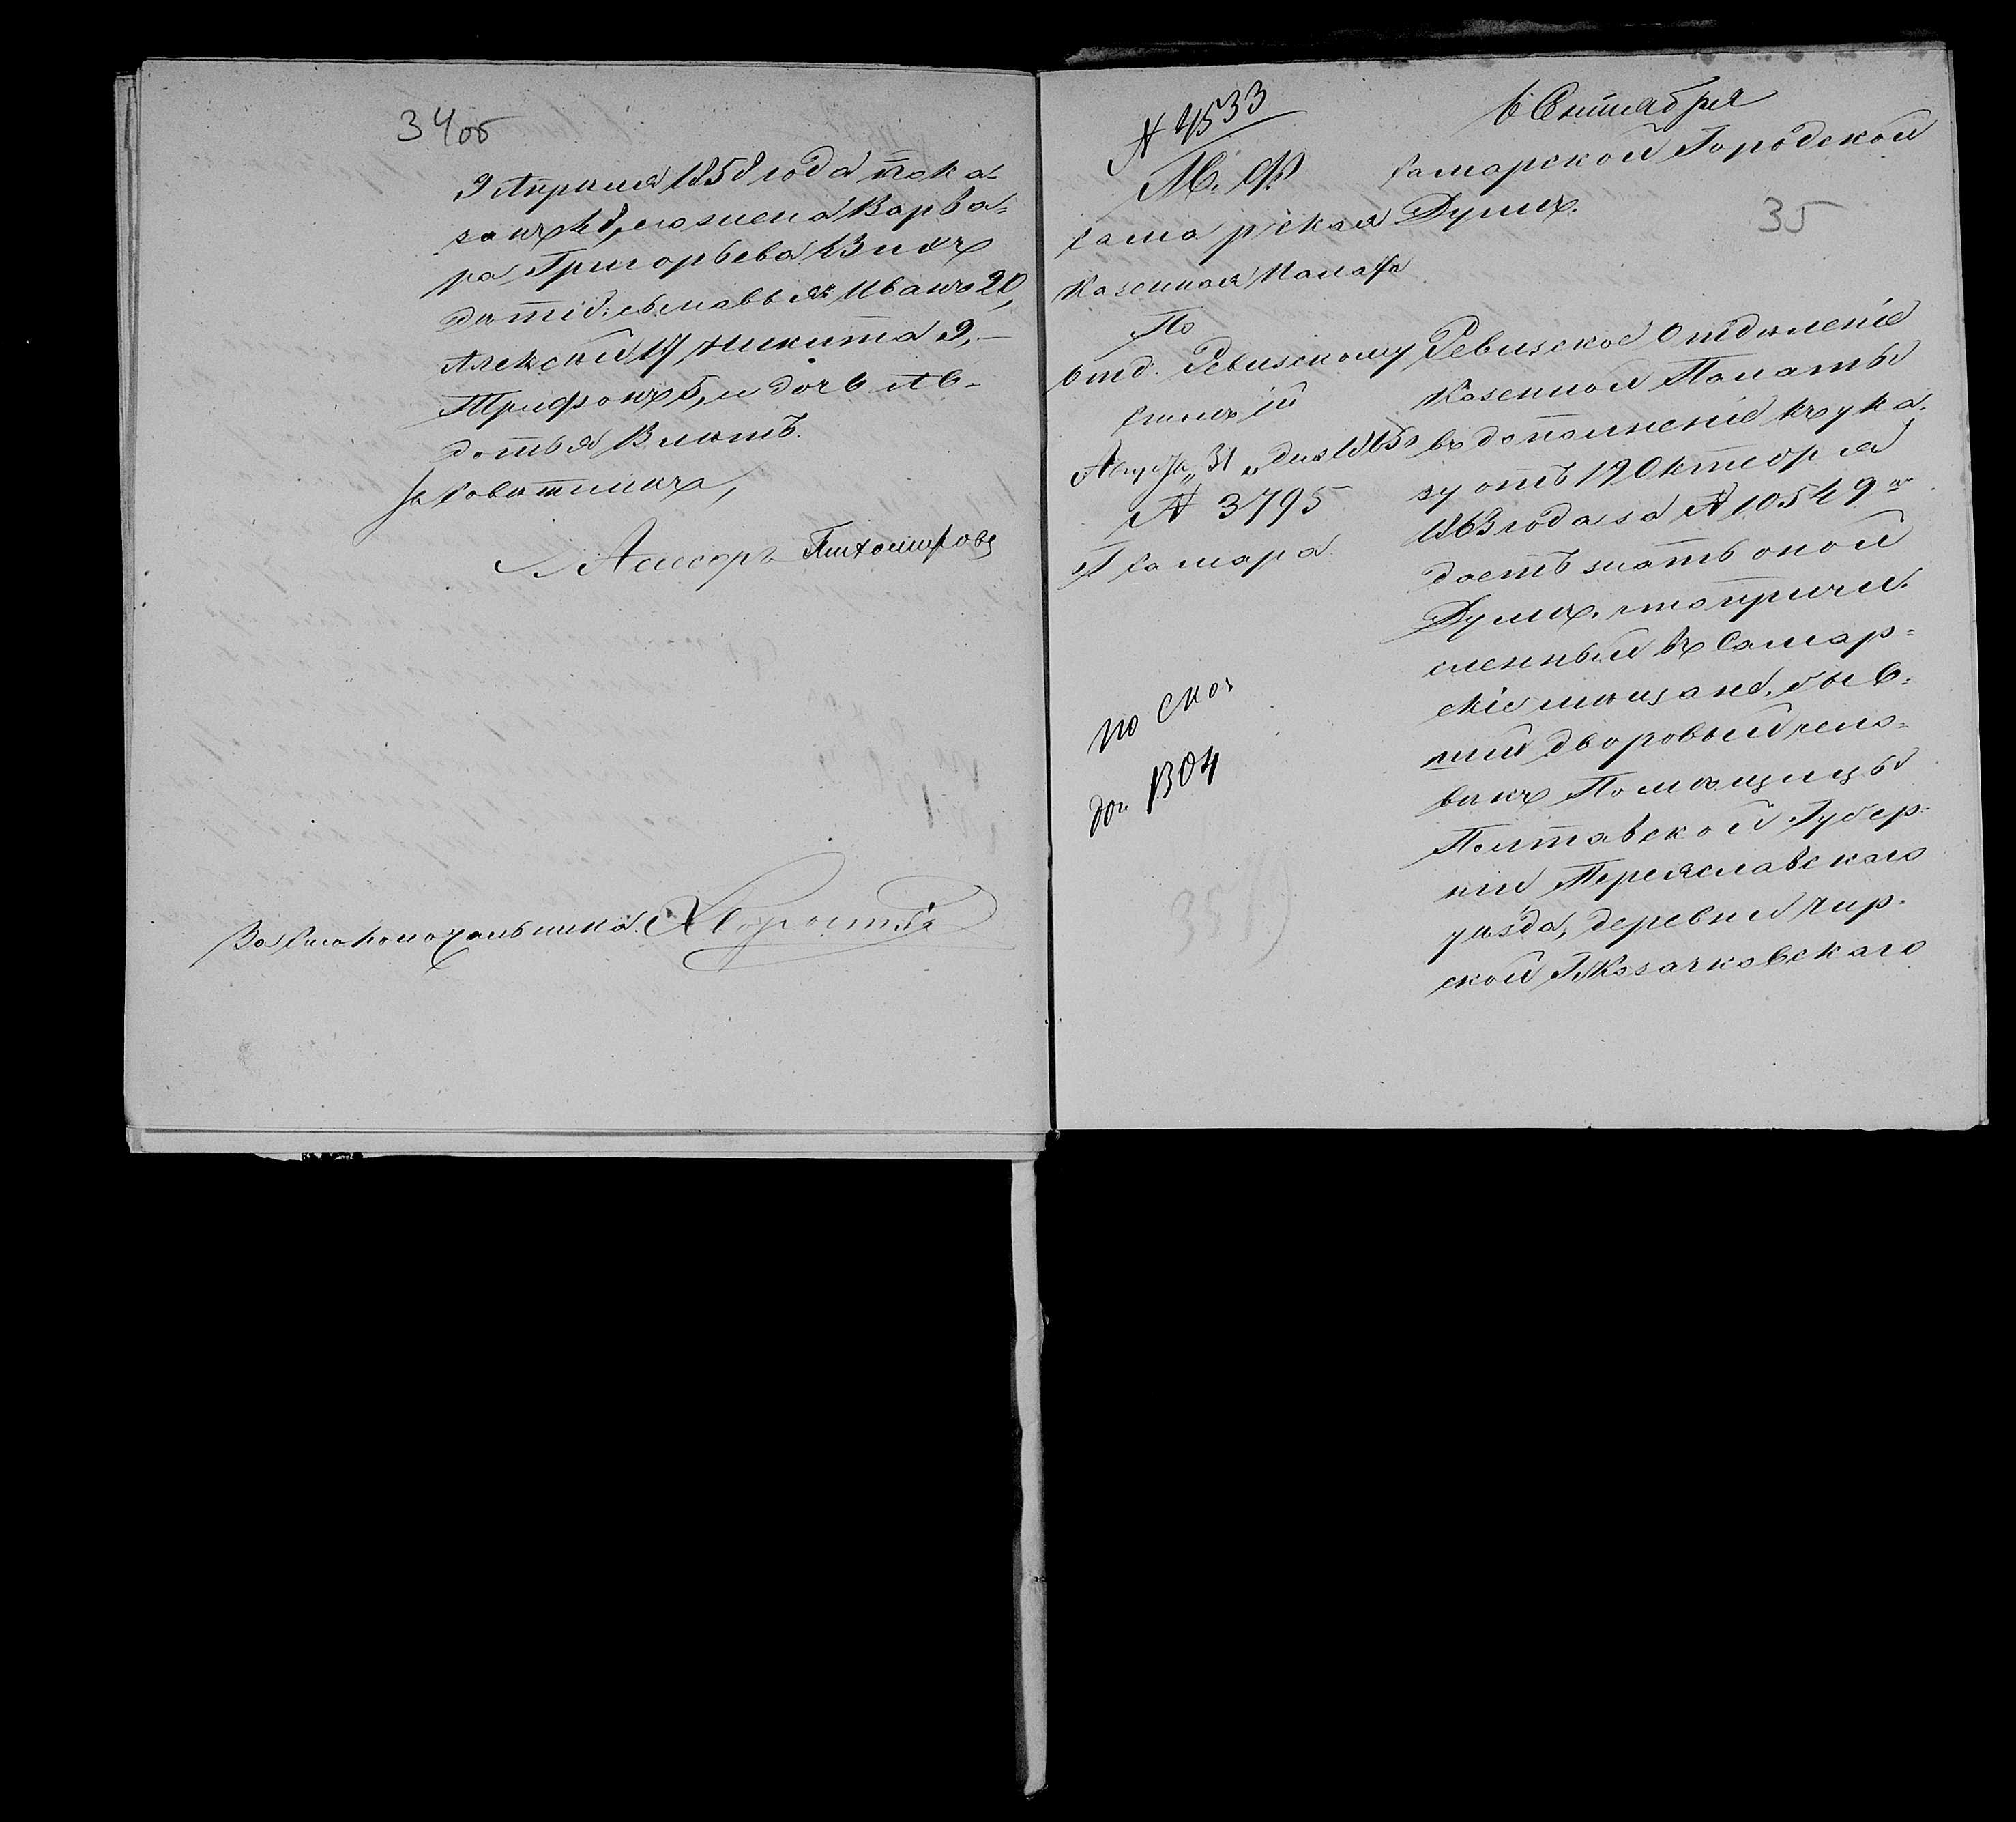 34об
9 Апреля 1858 года пока-
занъ 48, его жена Варва-
ра Григорьева 43 и ихъ
дѣти: сыновья Иванъ 20,
Алексѣй 17, Никита 9,
Трифонъ 5, и дочь Ав-
дотья 13 лѣтъ.
За Совѣтника,
Ассесоръ Тихомировъ
За Столоначальника
N 4533
М. Ф.
Самарская
Казенная Палата
По
Отд. Ревизскому
Августа „31„ дня 1865
N 3795
Г Самара
по сказ
1304
6 Сентября
Самарской Городской
Думѣ.
35
Ревизское Отдѣленіе
Казенной Палаты
въ дополненіе къ ука-
зу отъ 19 Октября
1863 года за N 10549
даетъ знать оной
Думѣ, что причи-
сленный въ Самар-
скіе мѣщане, быв-
шій дворовый чело-
вѣкъ Помѣщицы
Полтавской Губер-
ніи Переяславскаго
уѣзда, деревни Чир-
ской Козачковскаго